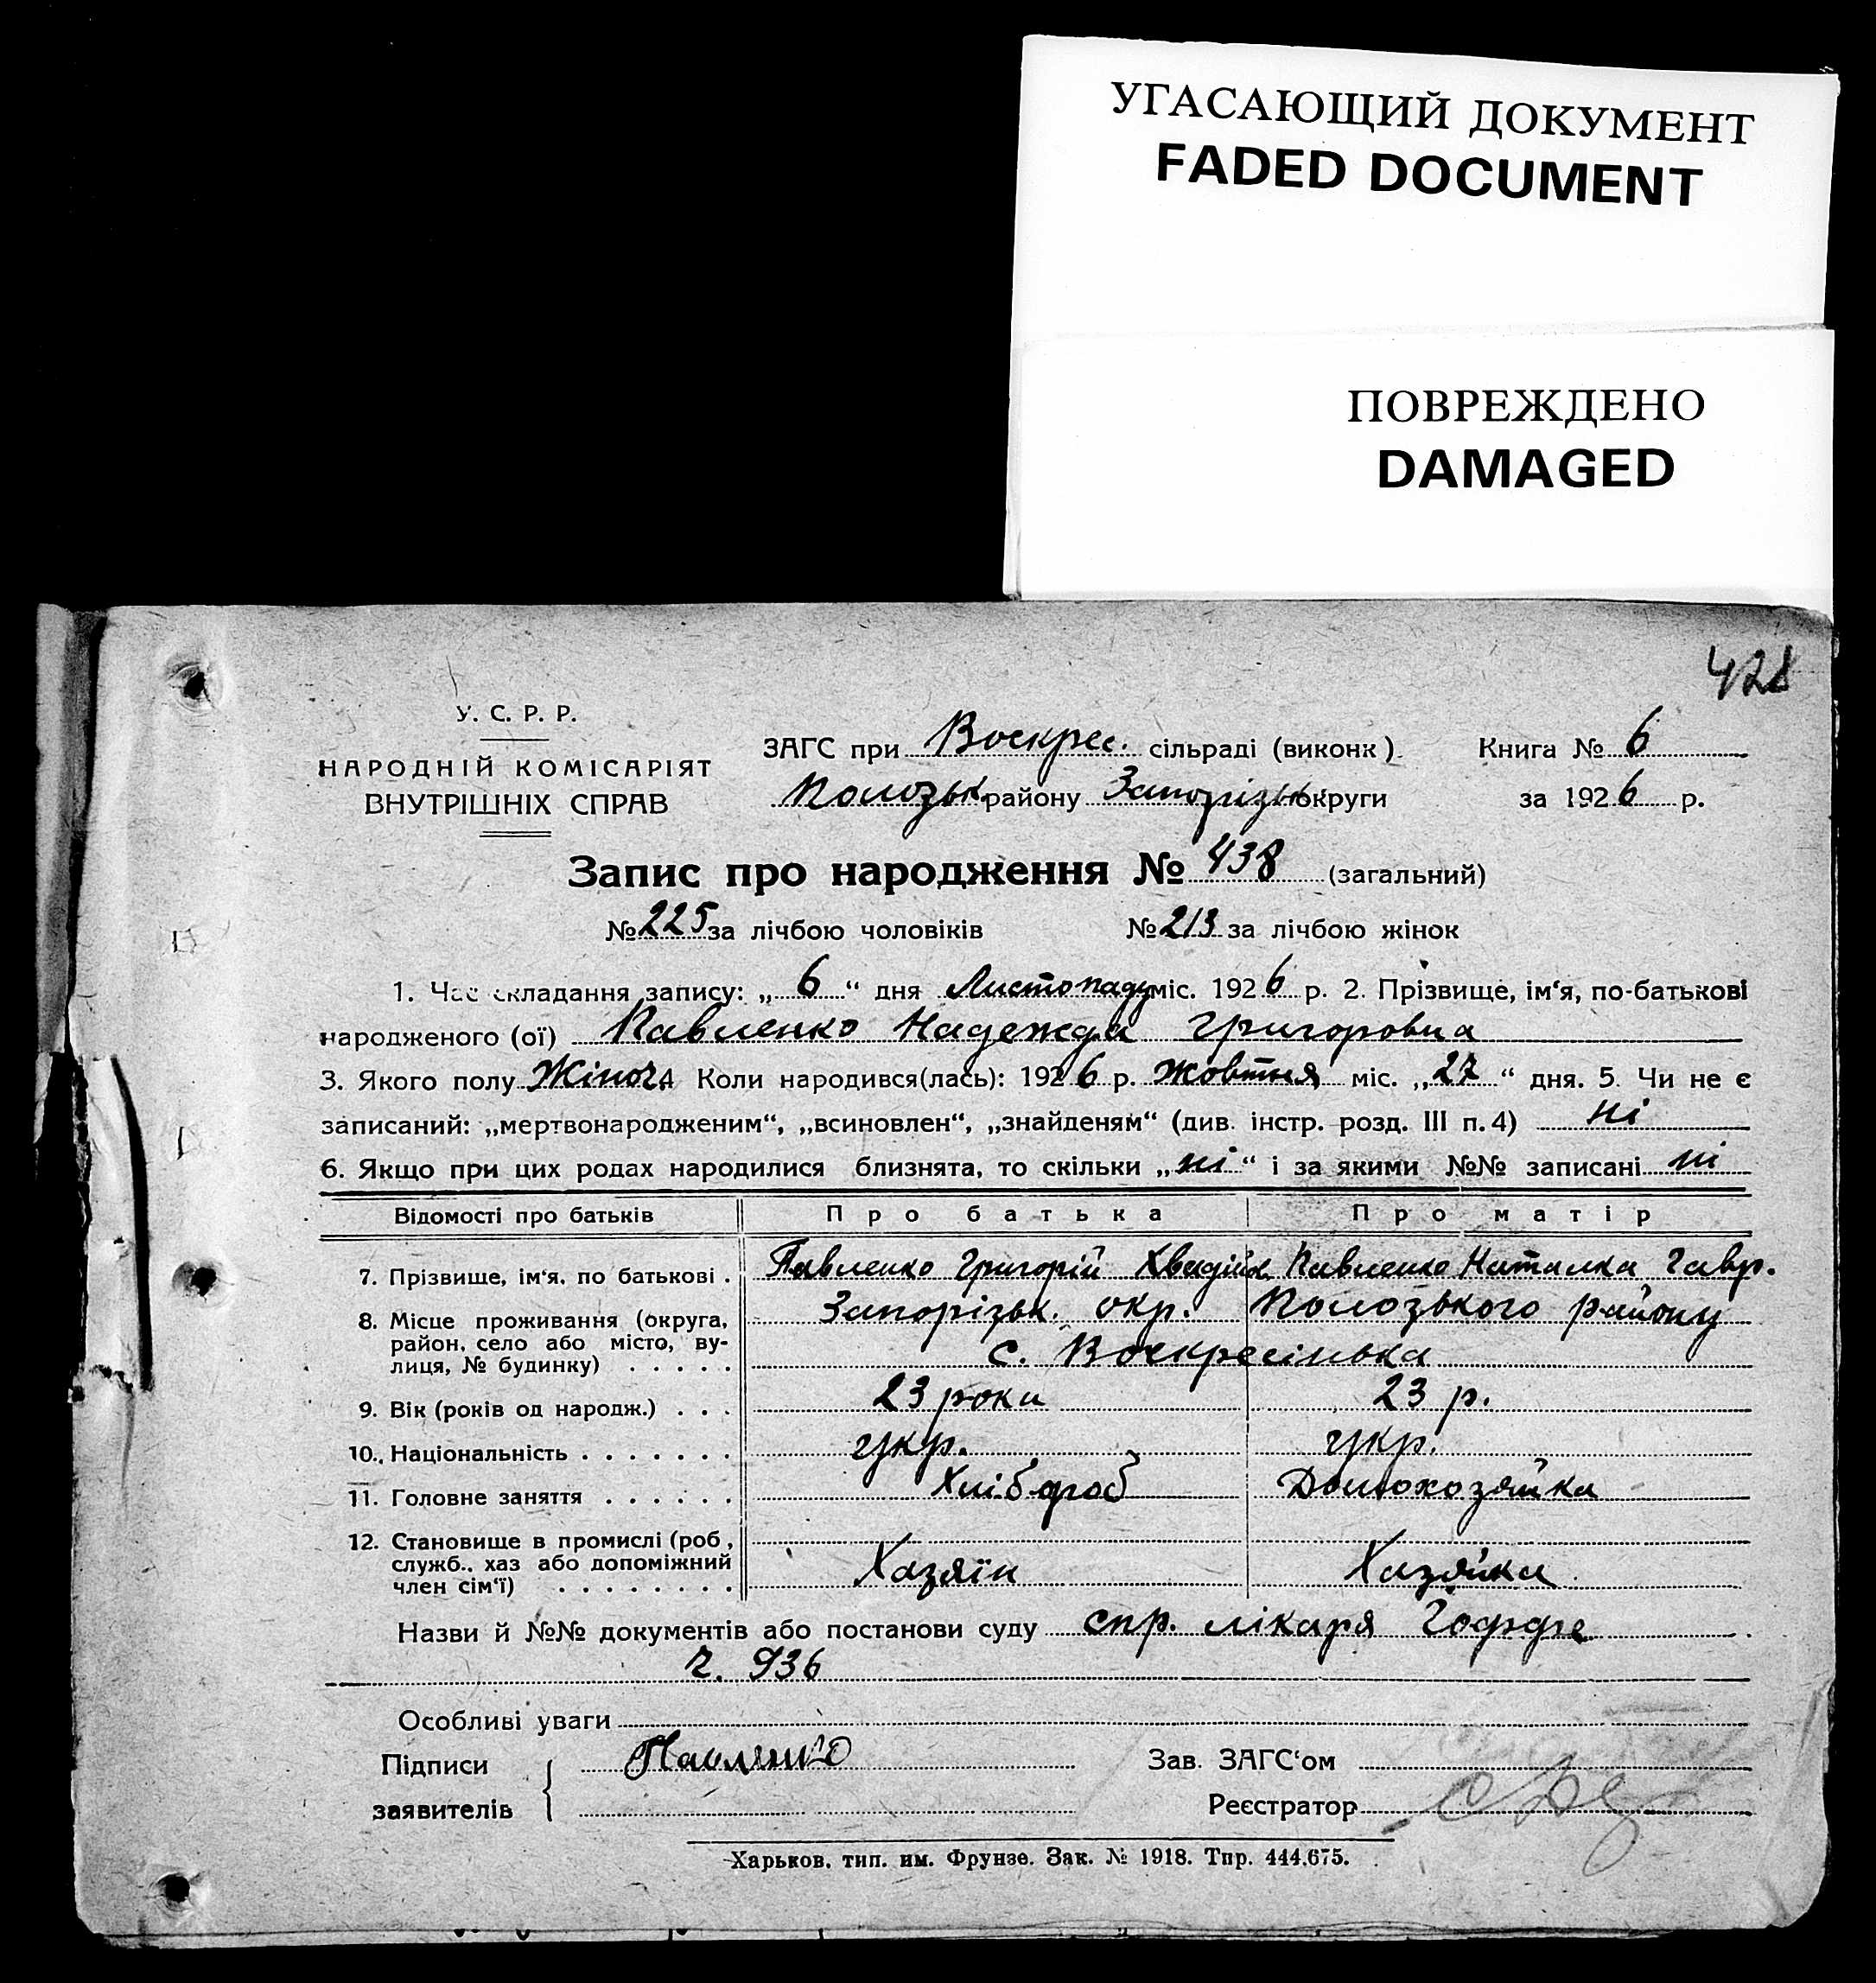 УГАСАЮЩИЙ ДОКУМЕНТ
FADED DOCUMENT
ПОВРЕЖДЕНО
DAMAGED
428
У. С. Р. Р.
НАРОДНІЙ КОМІСАРІЯТ
ВНУТРІШНІХ СПРАВ
ЗАГС при Воскрес. сільраді (виконк). Книга № 6
Пологзьк. району Запорізьк округи за 1926 р.
Запис про народження № 438 (загальний)
№ 225 за лічбою чоловіків № 213 за лічбою жінок
1. Час складання запису: „ 6 “ дня Листопаду міс. 1926 р. 2. Прізвище, ім‘я, по-батькові
народженого (ої) Павленко Надежда Григоровна
3. Якого полу Жіноч. 4 Коли народився(лась): 1926 р. Жовтня міс. „27“ дня. 5. Чи не є
записаний: „мертвонародженим“, „всиновлен“, „знайденям“ (див. інстр. розд. III п. 4) ні
6. Якщо при цих родах народилися близнята, то скільки „ні“ і за якими №№ записані ні
Відомості про батьків Про батька Про матір
7. Прізвище, ім‘я, по батькові . Павленко Григорій Павленко Наталка Гавр.
8. Місце проживання (округа, Запорізьк. окр. Пологзького району
район, село або місто, ву-
лиця, № будинку) . . . . . с. Воскресінька
9. Вік (років од народж.) . . . 23 роки 23 р.
10. Національність . . . . . . . укр. укр.
11. Головне заняття . . . . . . Хлібороб Домохозяйка
12. Становище в промислі (роб.,
служб., хаз або допоміжний
член сім‘ї) . . . . . . . . Хазяїн Хазяйка
Назви й №№ документів або постанови суду спр. лікаря Гоффе
ч. 936
Особливі уваги
Підписи Павленко Зав. ЗАГС‘ом
заявителів Реєстратор
Харьков, тип. им. Фрунзе. Зак. № 1918. Тир. 444.675.